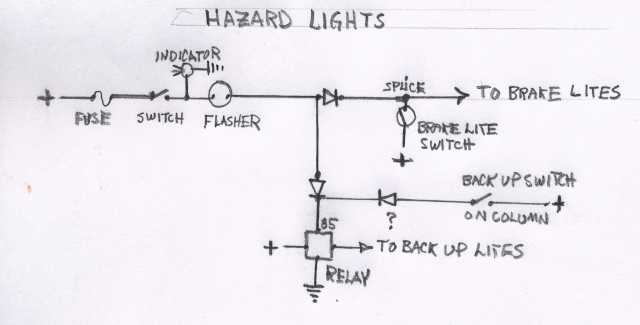 HAZARD LIGHTS
INDICATOR
+
FUSE
SWITCH
FLASHER
SPLICE
TO BRAKE LITES
BRAKE LITE
SWITCH
+
BACK UP SWITCH
+
ON COLUMN
?
85
+
TO BACK UP LITES
RELAY